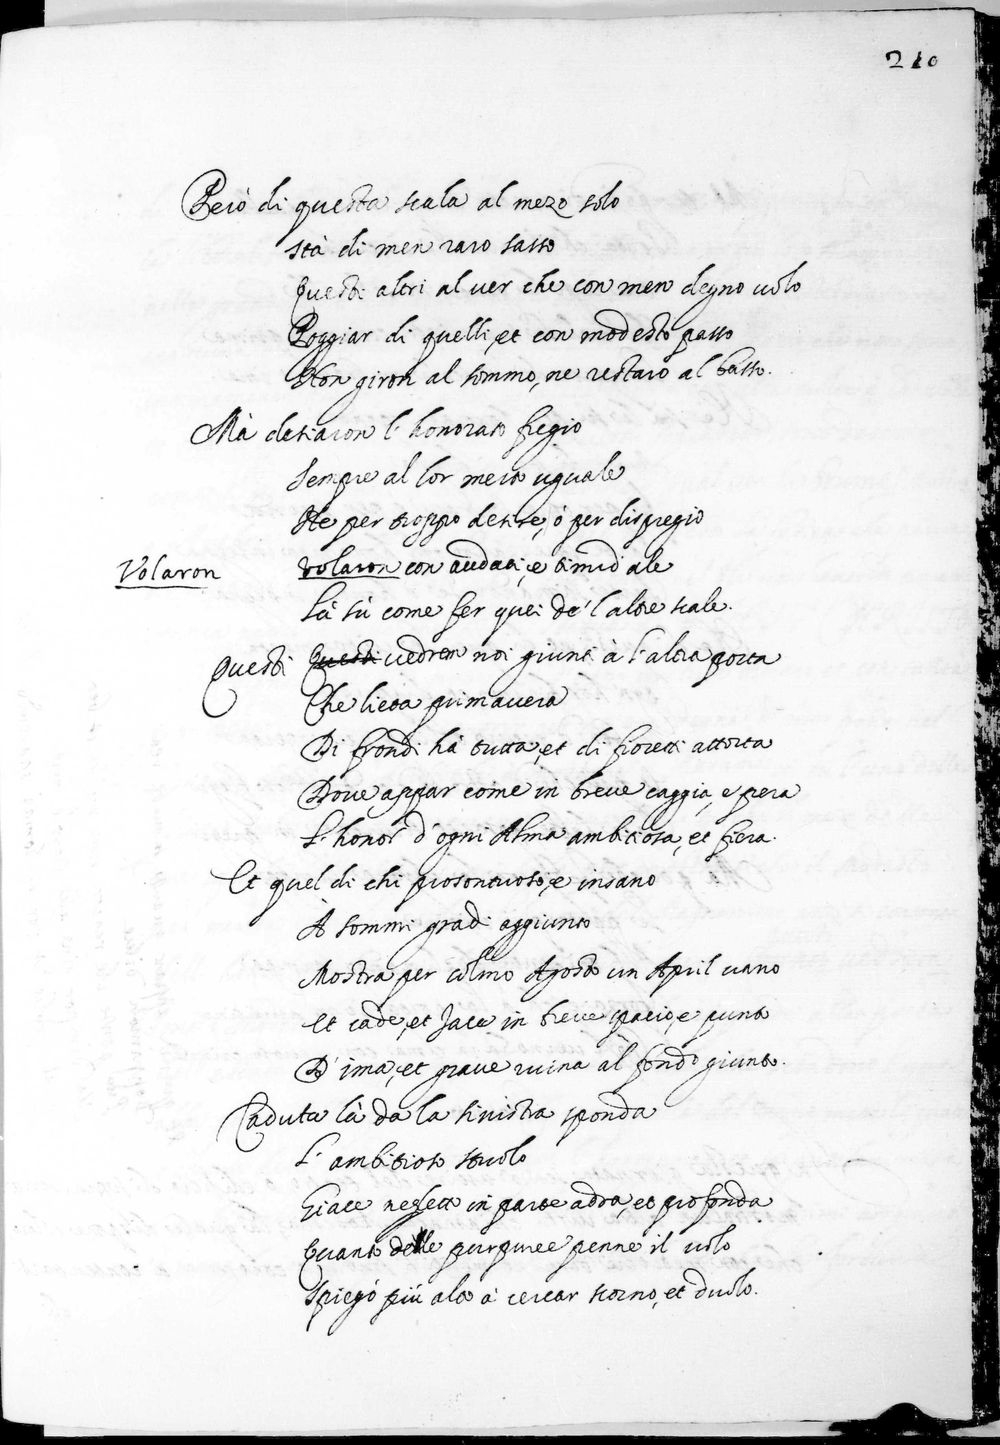 210
Però di questa scala al mezo solo
stà di men raro sasso
Questi altri al ver che con men degno volo
Poggiar di quelli, et con modesto passo
Non giron al sommo, ne restaro al basso.
Mà desiaron l'honorato fregio
sempre al lor merto uguale
Ne per troppo desire, ò per dispregio
Volaron volaron con audaci, e timid'ale
Là sù come fer quei de l'altre scale.
Questi Questi vedrem noi giunti à l'altra porta
Che lieta primavera
Di frondi hà tutta, et di fioretti attorta
Dove appar come in breve caggia, e pera
L'honor d'ogni Alma ambitiosa, et fiera.
Et quel di chi prosontuoso, e insano
A sommi gradi aggiunto
Mostra per colmo Agosto un April vano
Et cade, et Jace in breve spacio, e punto
D'ima, et grave ruina al fondo giunto.
Caduta là da la sinistra sponda
L'ambitioso stuolo
Giace negletto in parte adra, et profonda
Quanto delle purpuree penne il volo
Spiegò più alto à cercar scorno, et duolo.